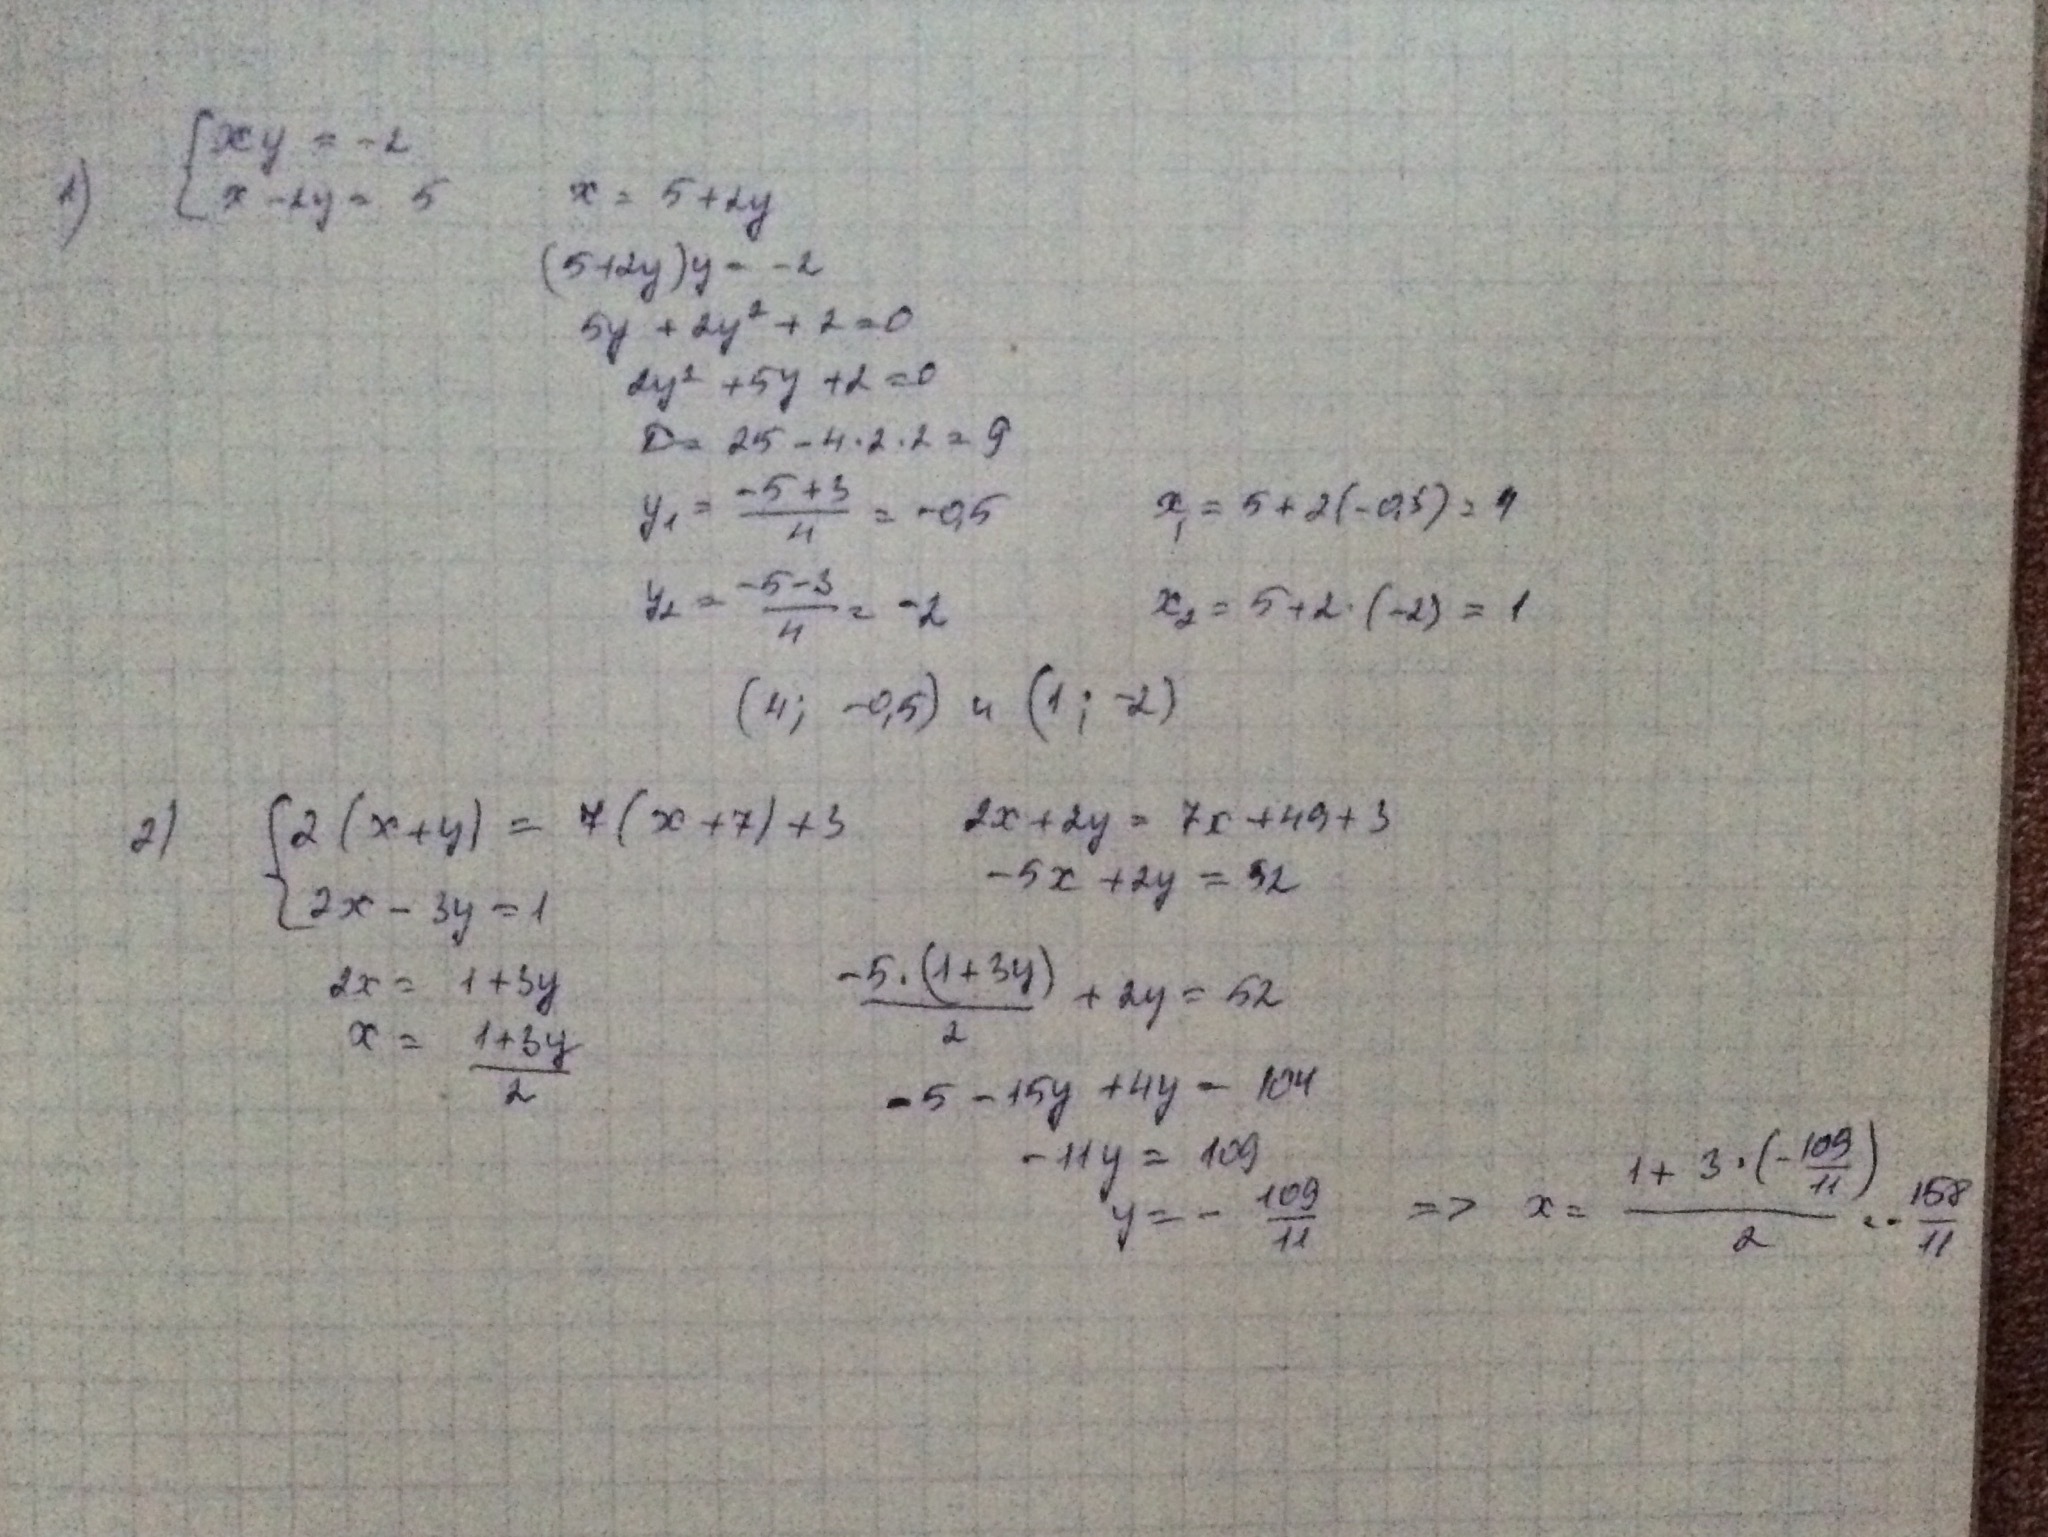 1) { xy = -2
x - 2y = 5    x = 5+2y
(5+2y)y = -2
5y + 2y² + 2 = 0
2y² + 5y + 2 = 0
D = 25 - 4·2·2 = 9
y₁ = (-5+3)/4 = -0,5    x₁ = 5+2(-0,5) = 4
y₂ = (-5-3)/4 = -2    x₂ = 5+2·(-2) = 1
(4; -0,5) и (1; -2)
2) { 2(x+y) = 7(x+7)+3    2x+2y = 7x+49+3
-5x+2y = 52
2x - 3y = 1
2x = 1+3y    -5·(1+3y)/2 + 2y = 52
x = (1+3y)/2
-5 - 15y + 4y = 104
-11y = 109
y = - 109/11 => x = (1 + 3·(-109/11))/2 = - 158/11